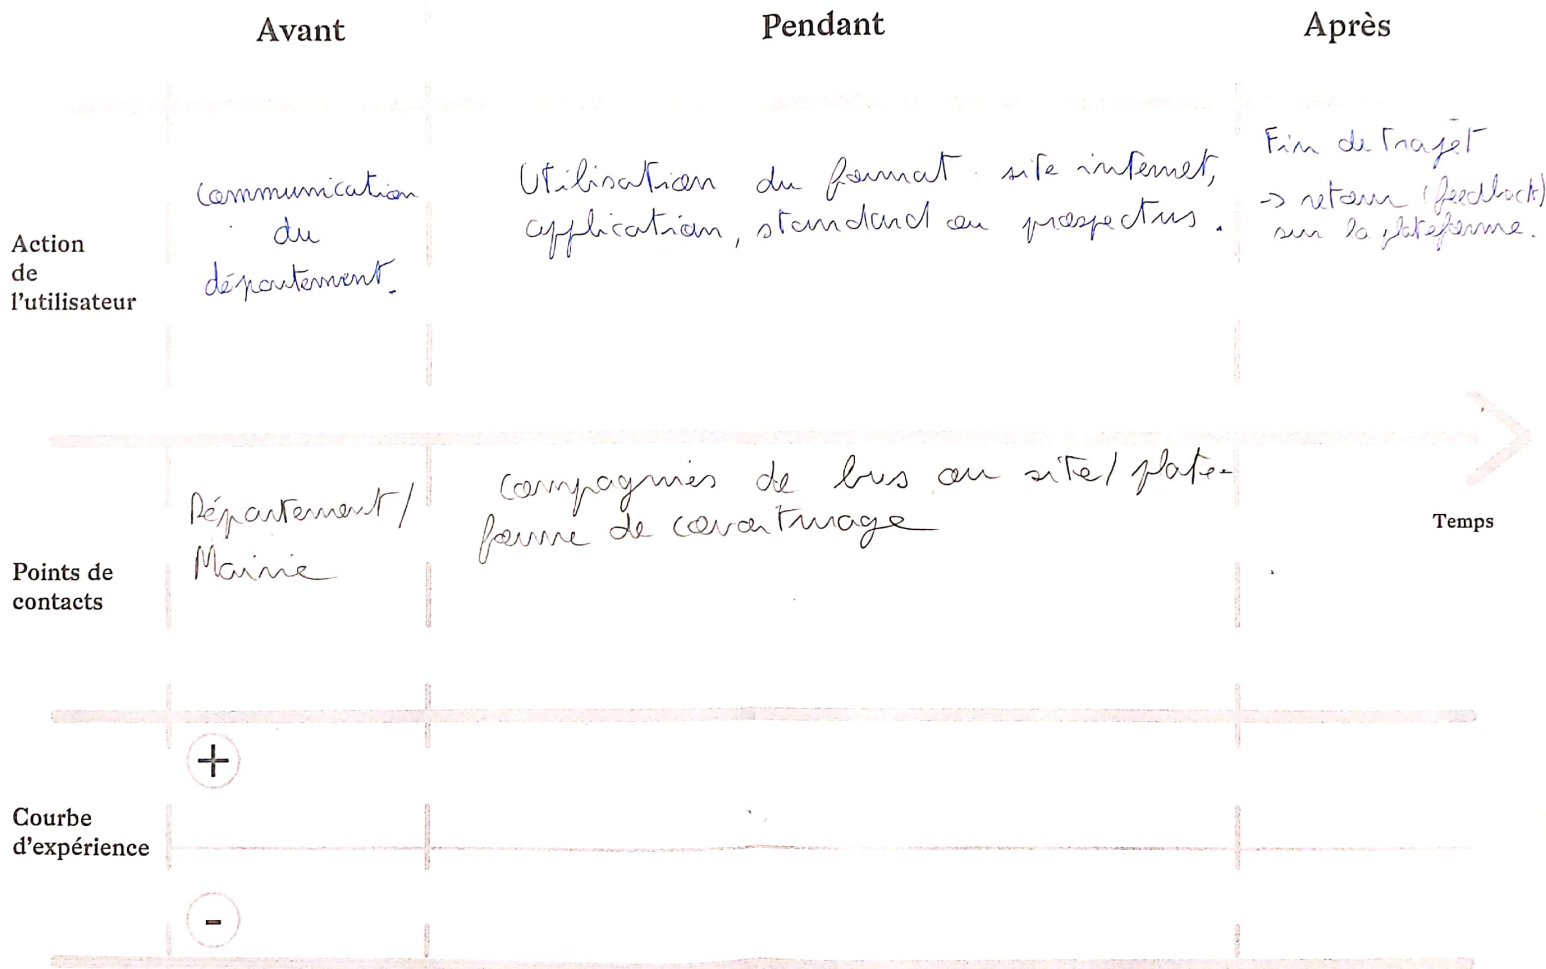 Avant
Pendant
Après
Action
de
l'utilisateur
communication
du
département.
Utilisation du format site internet,
application, standard ou prospectus.
Fin de Trajet
→ retour (feedback)
sur la plateforme.
Points de
contacts
Département /
Mairie
compagnies de bus ou site / plate-
forme de covoiturage
Temps
Courbe
d'expérience
+
-